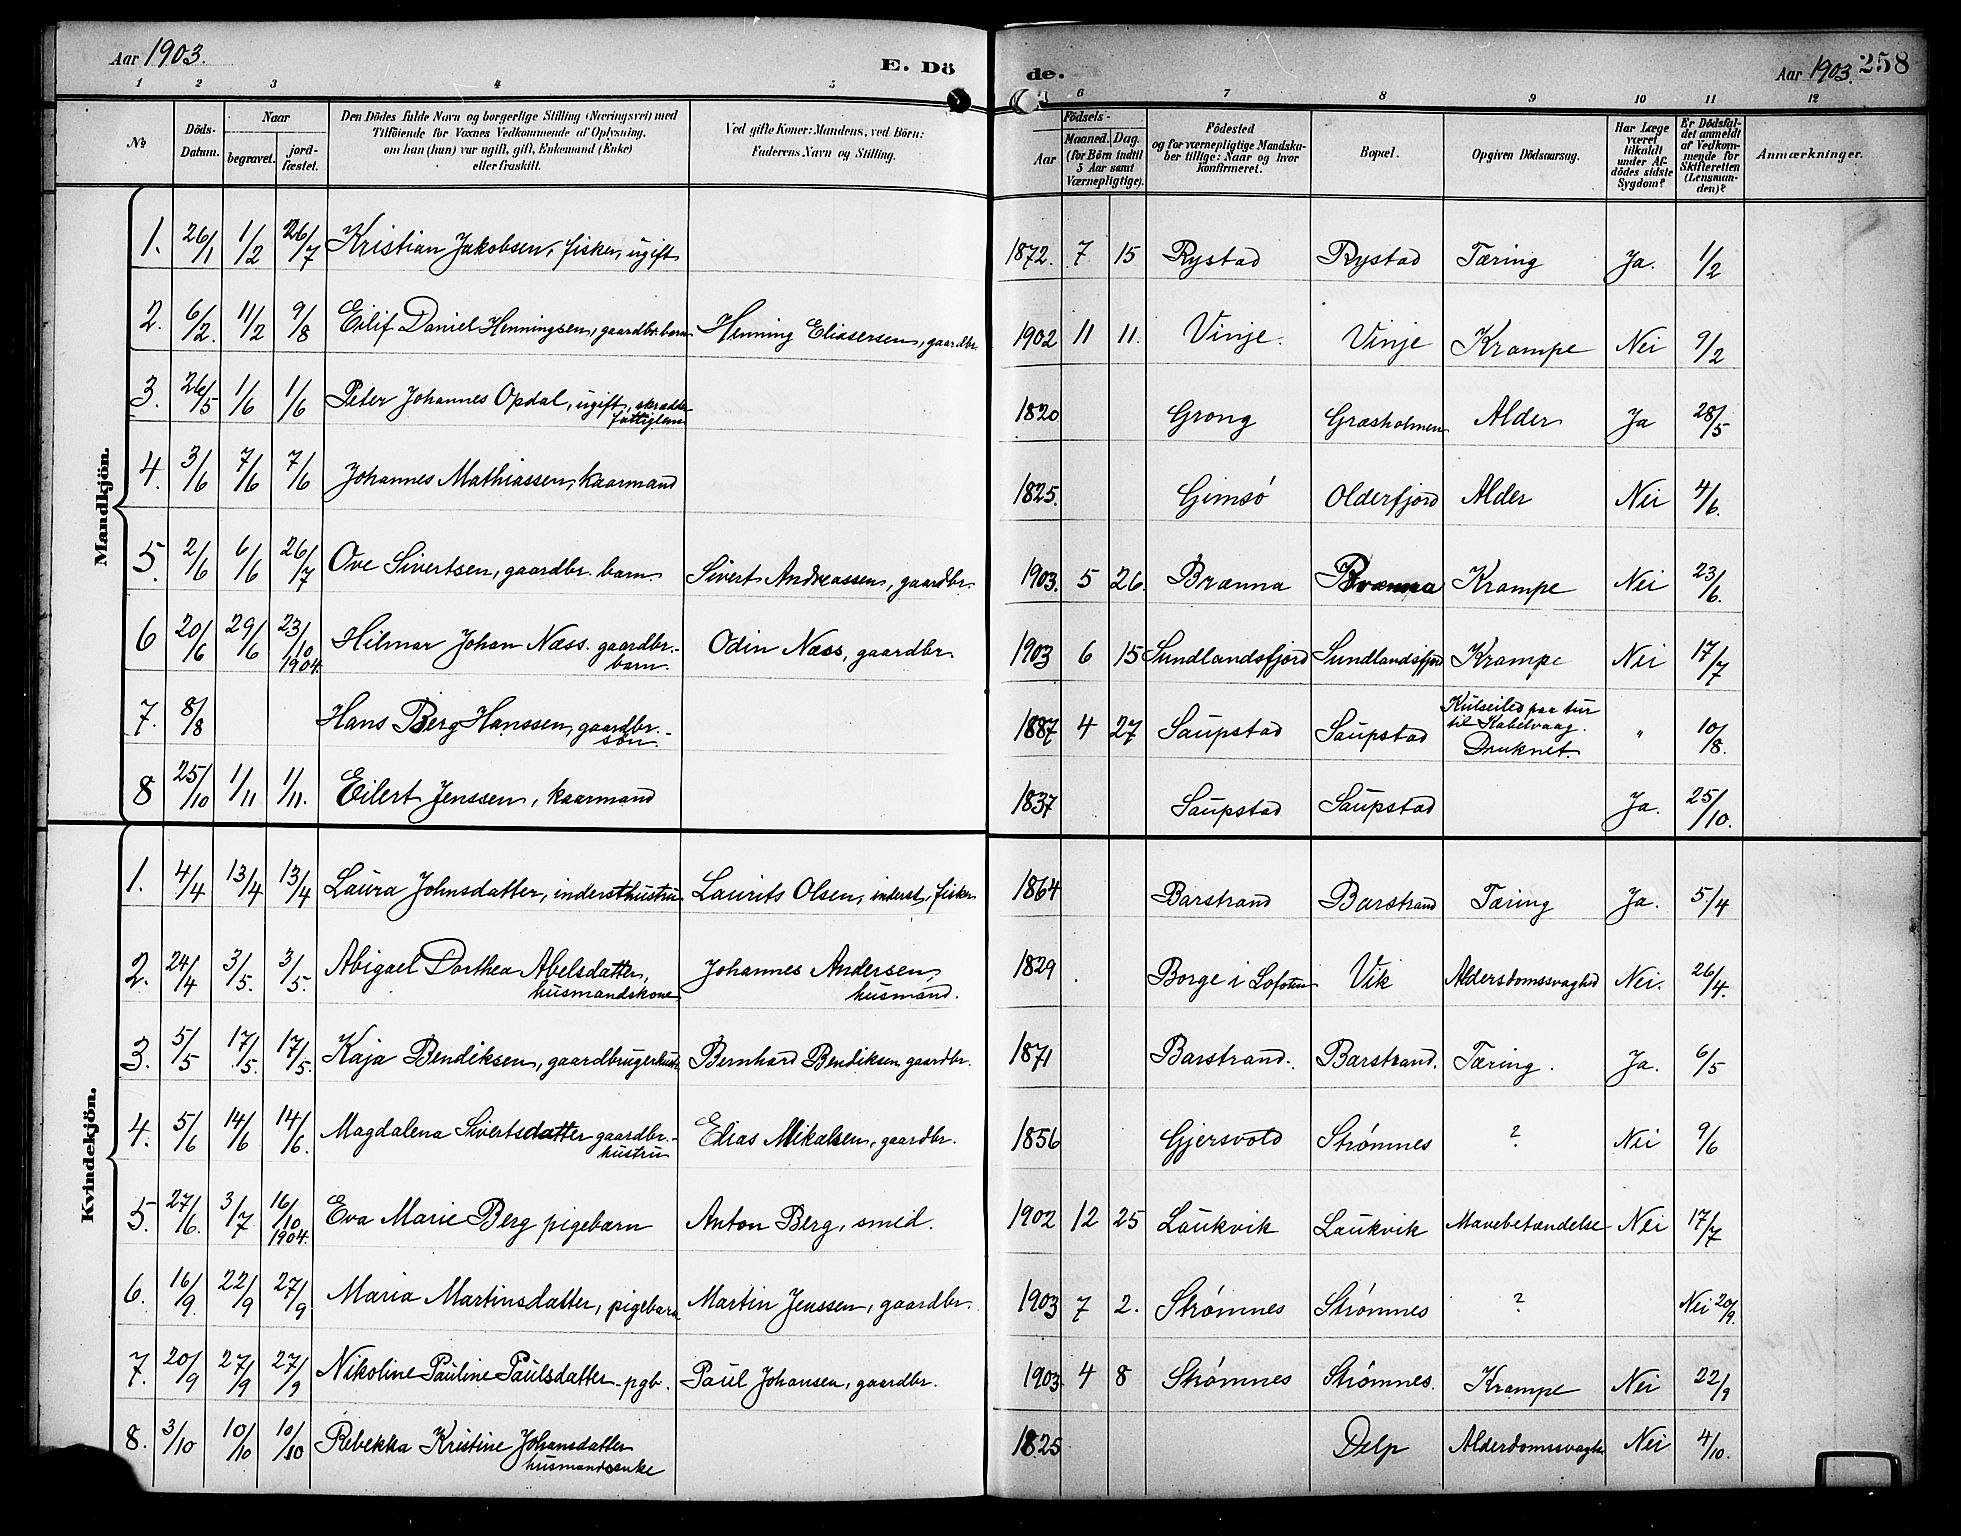 Aar 1903.
E. Dö
de.
Aar 1903. 258
1 2 3 4 5
6 7 8 9 10 11 12
№
Döds-Datum.
Naar
begravet.
jord-fæstet.
Den Dödes fulde Navn og borgerlige Stilling (Næringsvei) med
Tilföiende for Voxnes Vedkommende af Oplysning,
om han (hun) var ugift, gift, Enkemand (Enke)
eller fraskilt.
Ved gifte Koner: Mandens, ved Börn:
Faderens Navn og Stilling.
Födsels-
Aar
Maaned. Dag.
(for Börn indtil
5 Aar samt
Værnepligtige).
Födested
og for værnepligtige Mandska-
ber tillige: Naar og hvor
konfirmeret.
Bopæl.
Opgiven Dödsaarsag.
Har Læge
været
tilkaldt
under Af-
dödes sidste
Sygdom?
Er Dödsfal-
det anmeldt
af Vedkom-
mende for
Skifteretten
(Lensman-
den)?
Anmærkninger.
Mandkjön.
1. 26/1 1/2 26/7 Kristian Jakobsen, fisker, ugift 1872. 7 15 Rystad Rystad Tæring Ja. 1/2
2. 6/2. 11/2 9/8 Eilif Daniel Henningsen, gaardbr. barn Henning Eliasersen, gaardbr. 1902 11 11. Vinje. Vinje Krampe Nei 9/2
3. 26/5 1/6 1/6 Peter Johannes Opdal, ugift, skrædder 1820 Grong Græsholmen Alder Ja 28/5
fattiglem
4. 3/6 7/6 7/6 Johannes Mathiassen, kaarmand 1825. Gimsø Olderfjord Alder Nei 4/6.
5. 2/6 6/6 26/7 Ove Sivertsen, gaardbr. barn Sivert Andreassen, gaardbr. 1903. 5 26. Brænna Brænna Krampe Nei 23/6.
6 20/6 29/6 23/10 1904. Hilmar Johan Næss. gaardbr.- Odin Næss, gaardbr. 1903 6 15 Sundlandsfjord Sundlandsfjord Krampe Nei 17/7
barn.
7. 8/8 Hans Berg Hanssen, gaardbr.- 1887 4 27 Saupstad Saupstad Kulseiled paa tur
til Kabelvaag.
søn. Druknet. " 10/8.
8 25/10 1/11 1/11. Eilert Jenssen, kaarmand 1837 Saupstad Saupstad Ja. 25/10.
Kvindekjön.
1. 4/4 13/4 13/4 Laura Johnsdatter, indersthustru Laurits Olsen, inderst, fisker 1864 Barstrand Barstrand Tæring Ja. 5/4
2. 24/4 3/5. 3/5. Abigael Dorthea Abelsdatter, Johannes Andersen 1829 Borge i Lofoten Vik Aldersdomssvaghed Nei. 26/4.
husmandskone husmand.
3. 5/5 17/5. 17/5. Kaja Bendiksen, gaardbrugerhustr. Bernhard Bendiksen gaardbr. 1871 Barstrand. Barstrand. Tæring. Ja. 6/5
4. 5/6 14/6 14/6. Magdalena Sivertsdatter gaardbr.- Elias Mikalsen, gaardbr. 1856 Gjersvold Strømnes ? Nei 9/6
hustru
5. 27/6. 3/7 16/10 1904. Eva Marie Berg pigebarn Anton Berg, smed. 1902 12 25 Laukvik Laukvik Mavebetændelse Nei 17/7
6. 16/9. 22/9 27/9 Maria Martinsdatter, pigebarn Martin Jenssen, gaardbr. 1903 7 2. Strømnes Strømnes ? Nei 20/9.
7. 20/9 27/9 27/9 Nikoline Pauline Paulsdatter - pgb. Paul Johansen, gaardbr. 1903 4 8 Strømnes Strømnes. Krampe Nei 22/9
8. 3/10 10/10 10/10 Rebekka Kristine Johansdatter 1825 Delp Alderdomssvagh. Nei 4/10.
husmandsenke